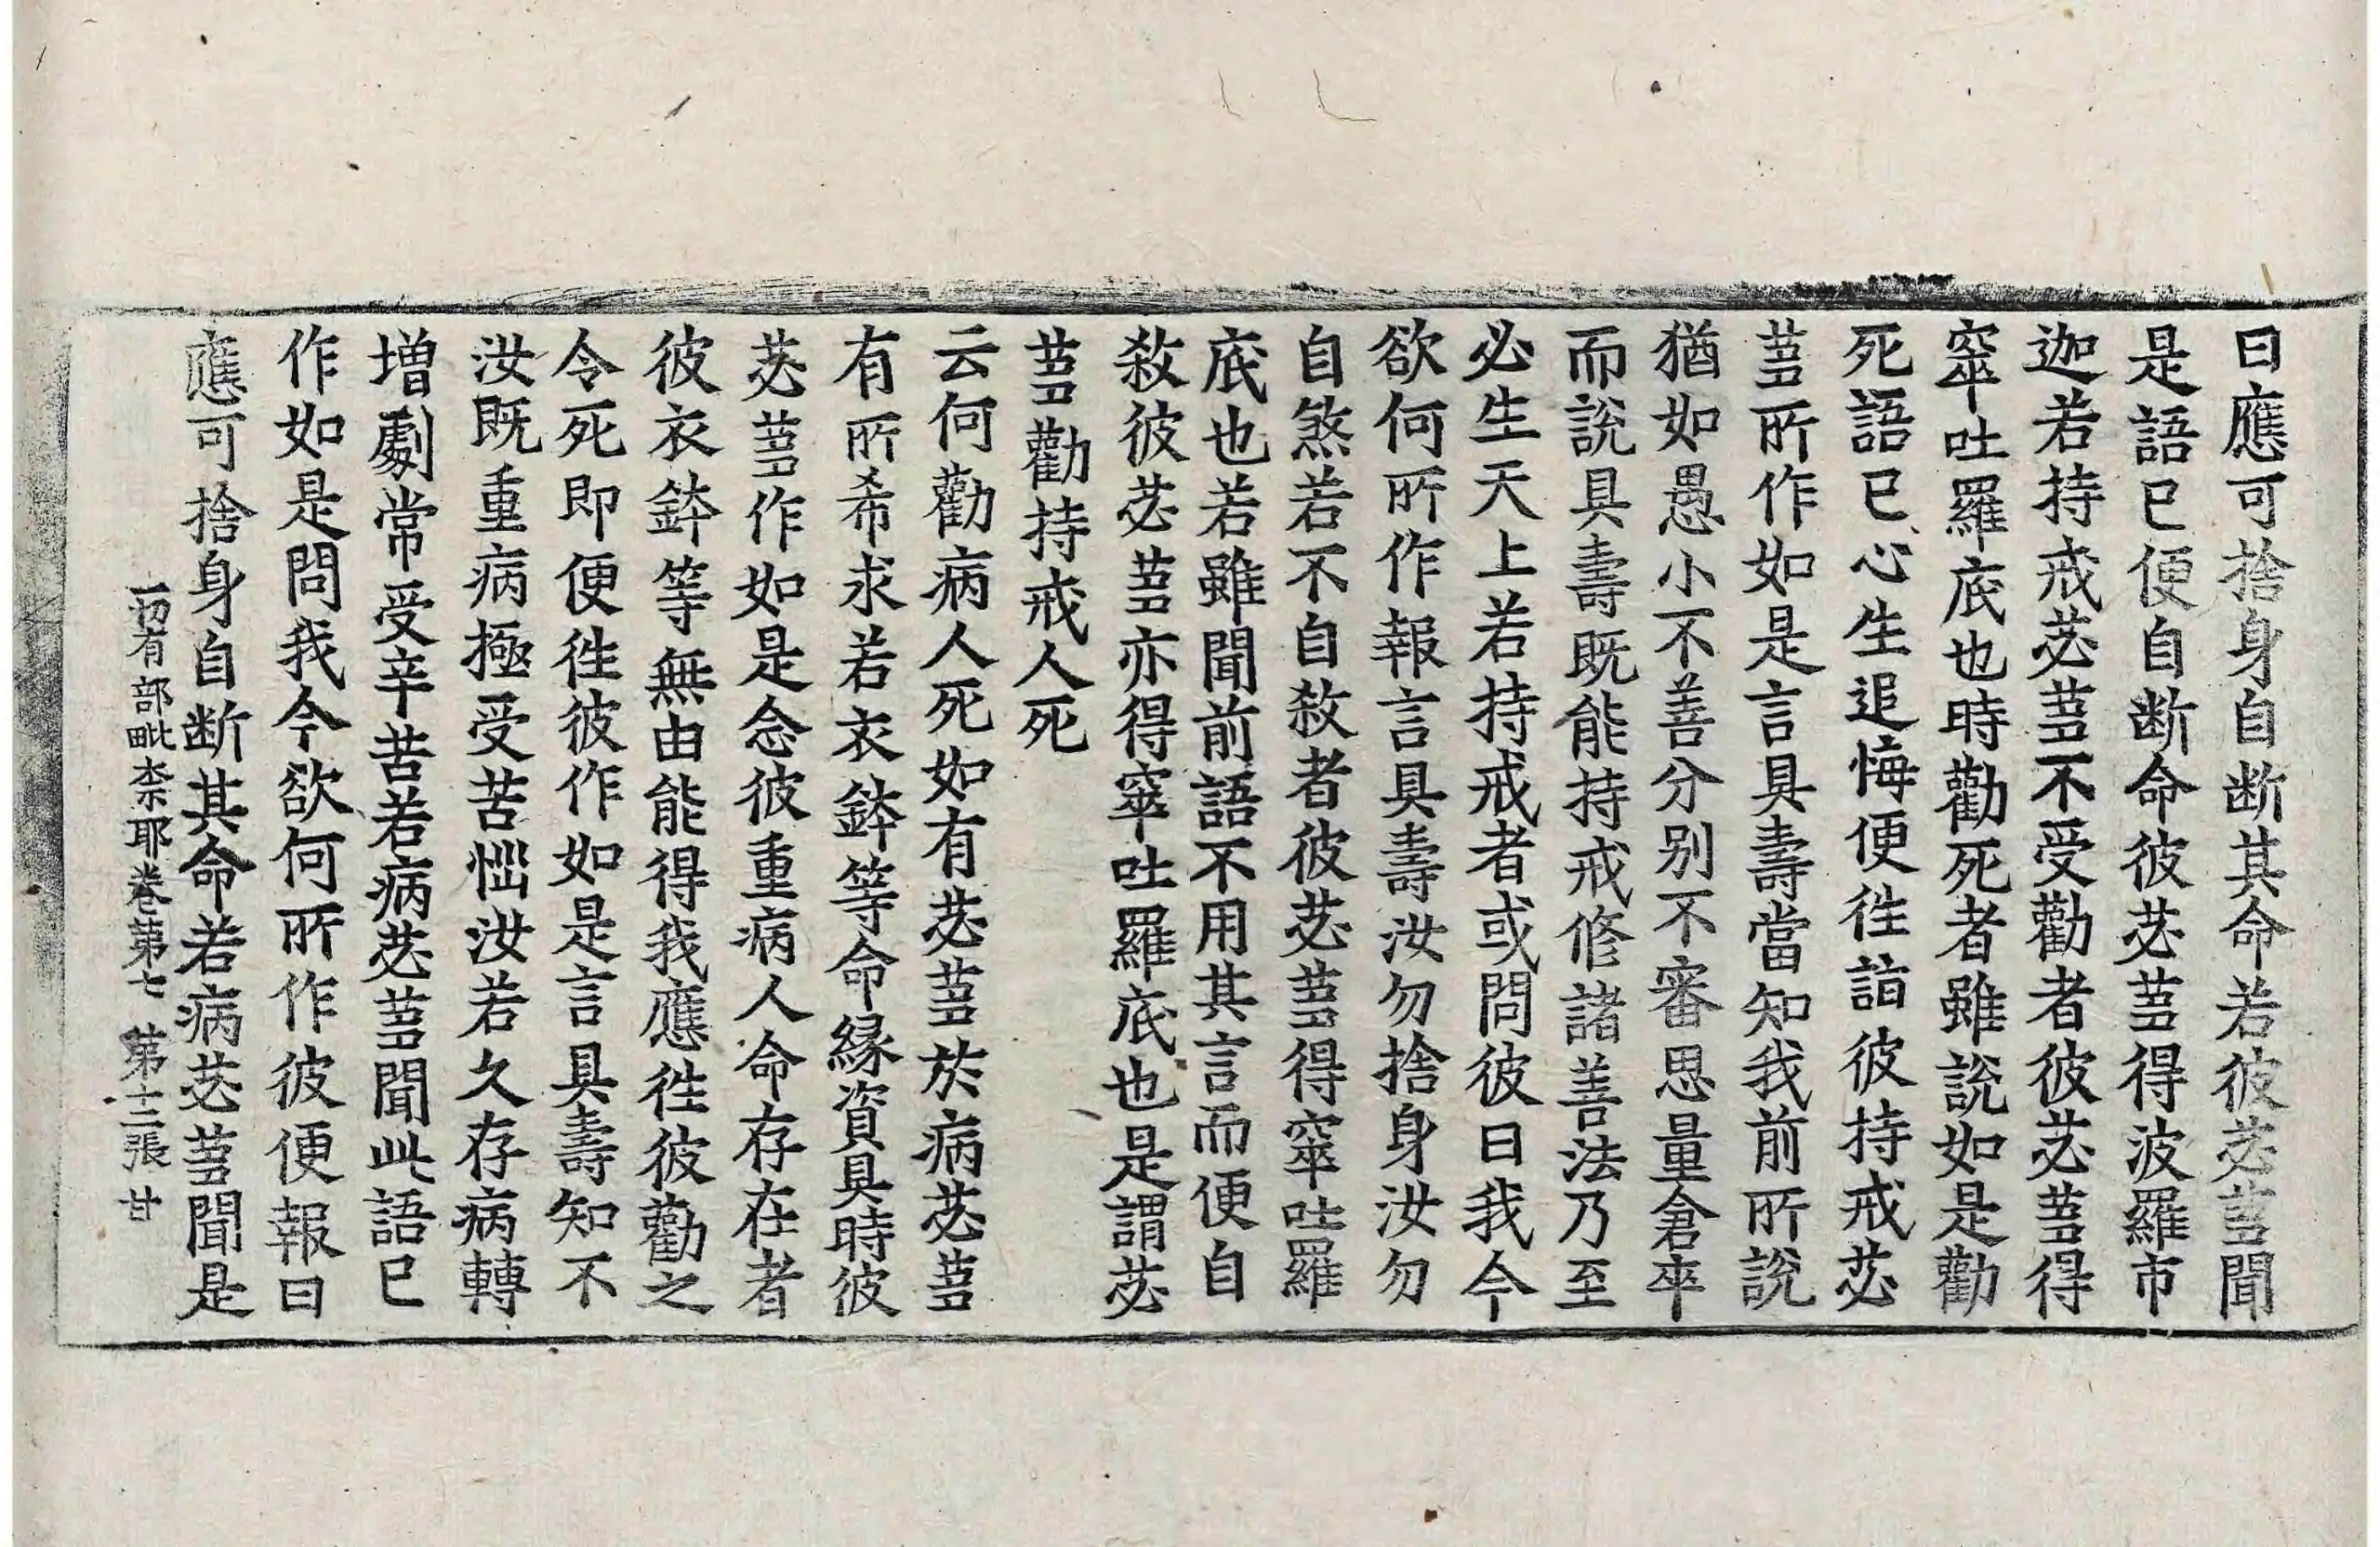 曰應可捨身自断其命若彼苾蒭聞
是語已便自断命彼苾蒭得波羅市
迦若持戒苾蒭不受勸者彼苾蒭得
窣吐羅底也時勸死者雖說如是勸
死語已心生追悔便徃詣彼持戒苾
蒭所作如是言具壽當知我前所說
猶如愚小不善分別不審思量倉卒
而說具壽既能持戒修諸善法乃至
必生天上若持戒者或問彼曰我今
欲何所作報言具壽汝勿捨身汝勿
自煞若不自敎者彼苾蒭得窣吐羅
底也若雖聞前語不用其言而便自
敎彼苾蒭亦得窣吐羅底也是謂苾
蒭勸持戒人死
云何勸病人死如有苾蒭於病苾蒭
有所希求若衣鉢等命縁資具時彼
苾蒭作如是念彼重病人命存在者
彼衣鉢等無由能得我應徃彼勸之
令死即便徃彼作如是言具壽知不
汝既重病極受苦惱汝若久存病轉
增劇常受辛苦若病苾蒭聞此語已
作如是問我今欲何所作彼便報曰
應可捨身自断其命若病苾蒭聞是
一切有部毗柰耶卷第七 第十二張 甘